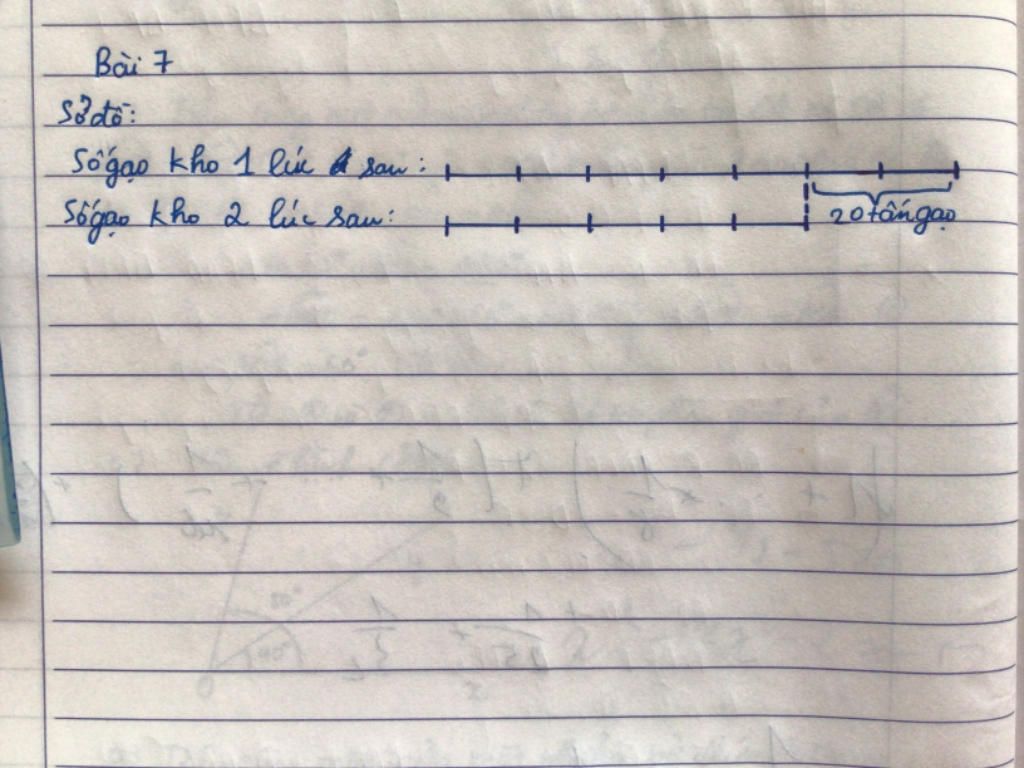 Bài 7
Sơ đồ:
Số gạo kho 1 lúc sau:
Số gạo kho 2 lúc sau:
20 tấn gạo